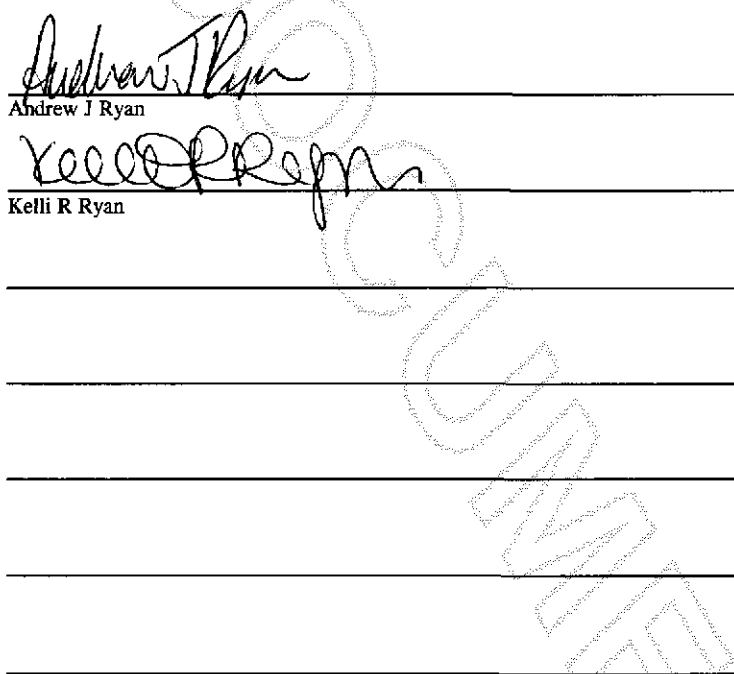 Andrew J Ryan
Andrew J Ryan
Kelli R Ryan
Kelli R Ryan